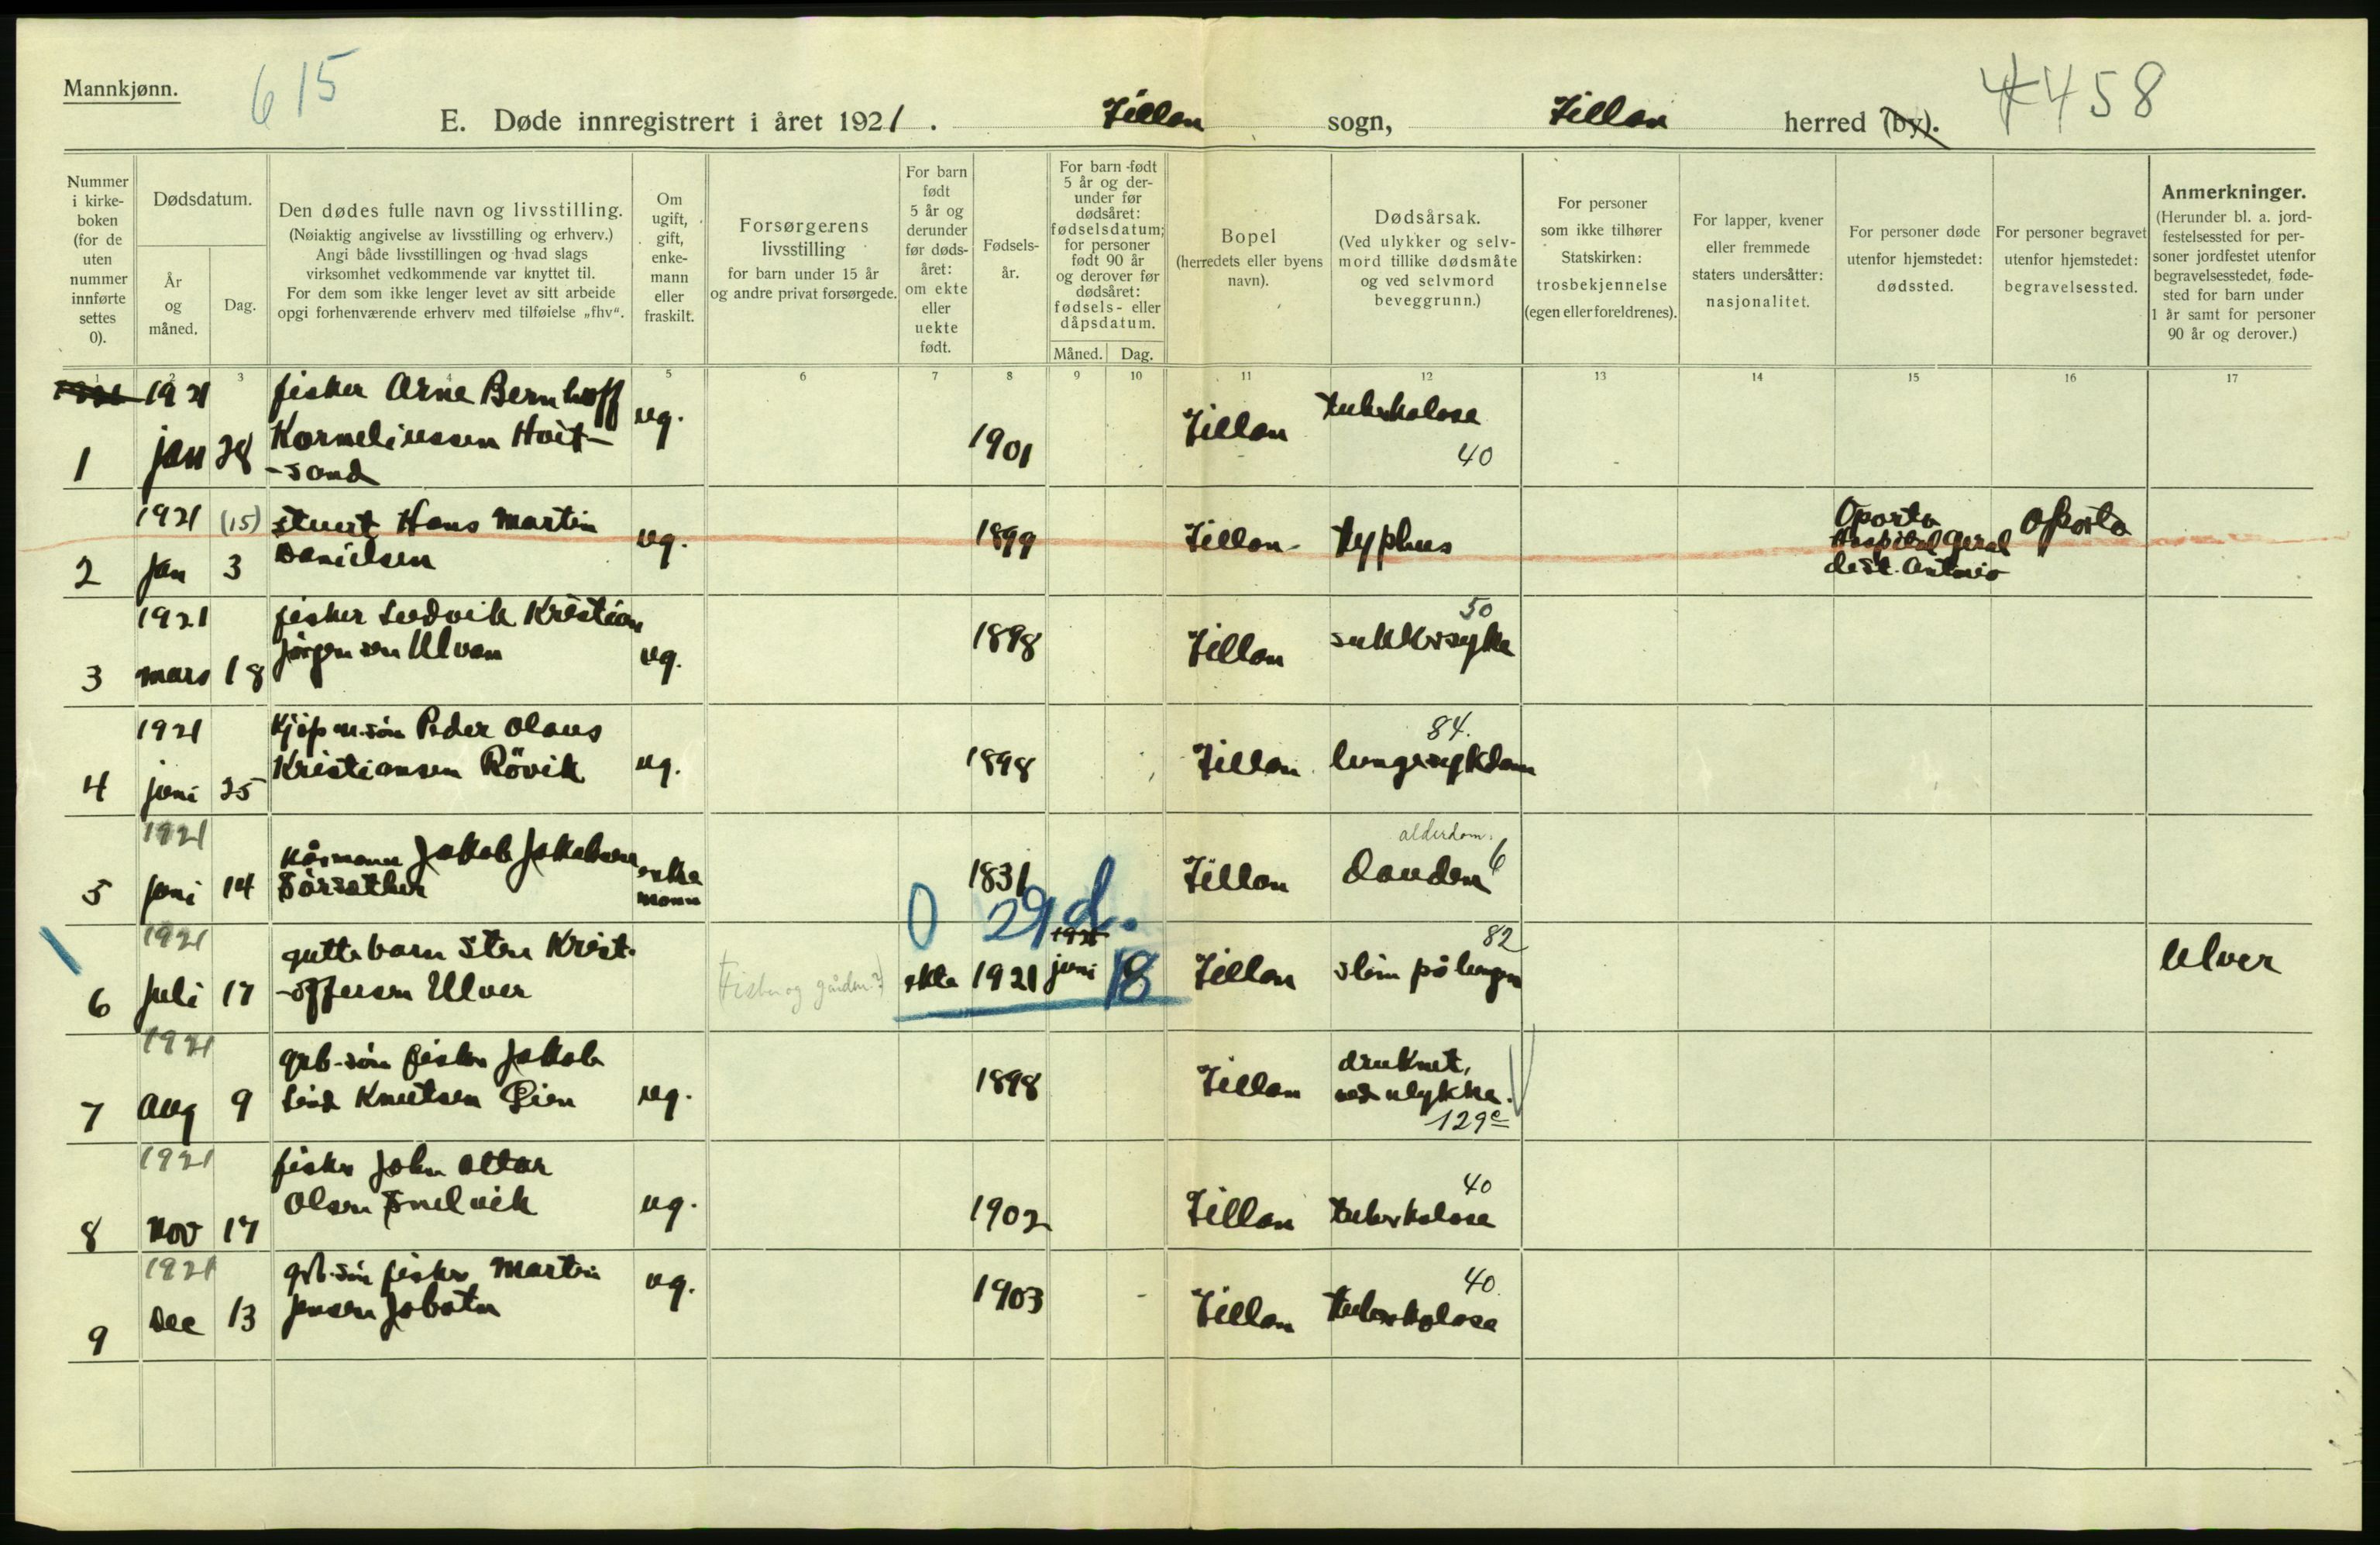 Mannkjønn.
615
E. Døde innregistrert i året 1921. Fillan sogn, Fillan herred (by).
4458
Nummer i kirke- boken (for de uten nummer innførte settes 0).
Dødsdatum.
År og måned.
Dag.
Den dødes fulle navn og livsstilling.
(Nøiaktig angivelse av livsstilling og erhverv.)
Angi både livsstillingen og hvad slags
virksomhet vedkommende var knyttet til.
For dem som ikke lenger levet av sitt arbeide
opgi forhenværende erhverv med tilføielse „fhv“.
Om ugift, gift, enke- mann eller fraskilt.
Forsørgerens
livsstilling
for barn under 15 år
og andre privat forsørgede.
For barn født 5 år og derunder før døds- året: om ekte eller uekte født.
Fødsels- år.
For barn født 5 år og der- under før dødsåret: fødselsdatum; for personer født 90 år og derover før dødsåret: fødsels- eller dåpsdatum.
Måned. Dag.
Bopel
(herredets eller byens
navn).
Dødsårsak.
(Ved ulykker og selv-
mord tillike dødsmåte
og ved selvmord
beveggrunn.)
For personer
som ikke tilhører
Statskirken:
trosbekjennelse
(egen eller foreldrenes).
For lapper, kvener
eller fremmede
staters undersåtter:
nasjonalitet.
For personer døde
utenfor hjemstedet:
dødssted.
For personer begravet
utenfor hjemstedet:
begravelsessted.
Anmerkninger.
(Herunder bl. a. jord-
festelsessted for per-
soner jordfestet utenfor
begravelsesstedet, føde-
sted for barn under
1 år samt for personer
90 år og derover.)
1 2 3 4 5 6 7 8 9 10 11 12 13 14 15 16 17
1 1921 jan 28 fisker Arne Bernhoff
Korneliussen Hoit-
-sand ug. 1901 Fillan tuberkolose 40
2 1921 jan (15) 3 stuert Hans Martin
Danielsen ug. 1899 Fillan typhus Oporto
Hospital Geral
de St. Antonio Oporto
3 1921 mars 18 fisker Ludvik Kristian
Jørgensen Ulvan ug. 1898 Fillan sukkersyke 50
4 1921 juni 25 Kjøpm.søn Peder Olaus
Kristiansen Rövik ug. 1898 Fillan lungesykdom 84.
5 1921 juni 14 kårmann Jakob Jakobsen
enke
mann 1831 Fillan alderdom. 6
0 29 d.
6 1921 Juli 17 guttebarn Sten Krist-
-offersen Ulver ekte 1921 juni 18 Fillan slim på lungen 82 Ulver
7 1921 Aug 9 grb.-søn fisker Jakob
Lind Knutsen Øien ug. 1898 Fillan druknet,
ved ulykke. 129c
8 1921 Nov 17 fisker John Ottar
Olsen ug. 1902 Fillan tuberkolose 40
9 1921 Dec 13 grb.søn fisker Martin
Jensen ug. 1903 Fillan tuberkolose 40